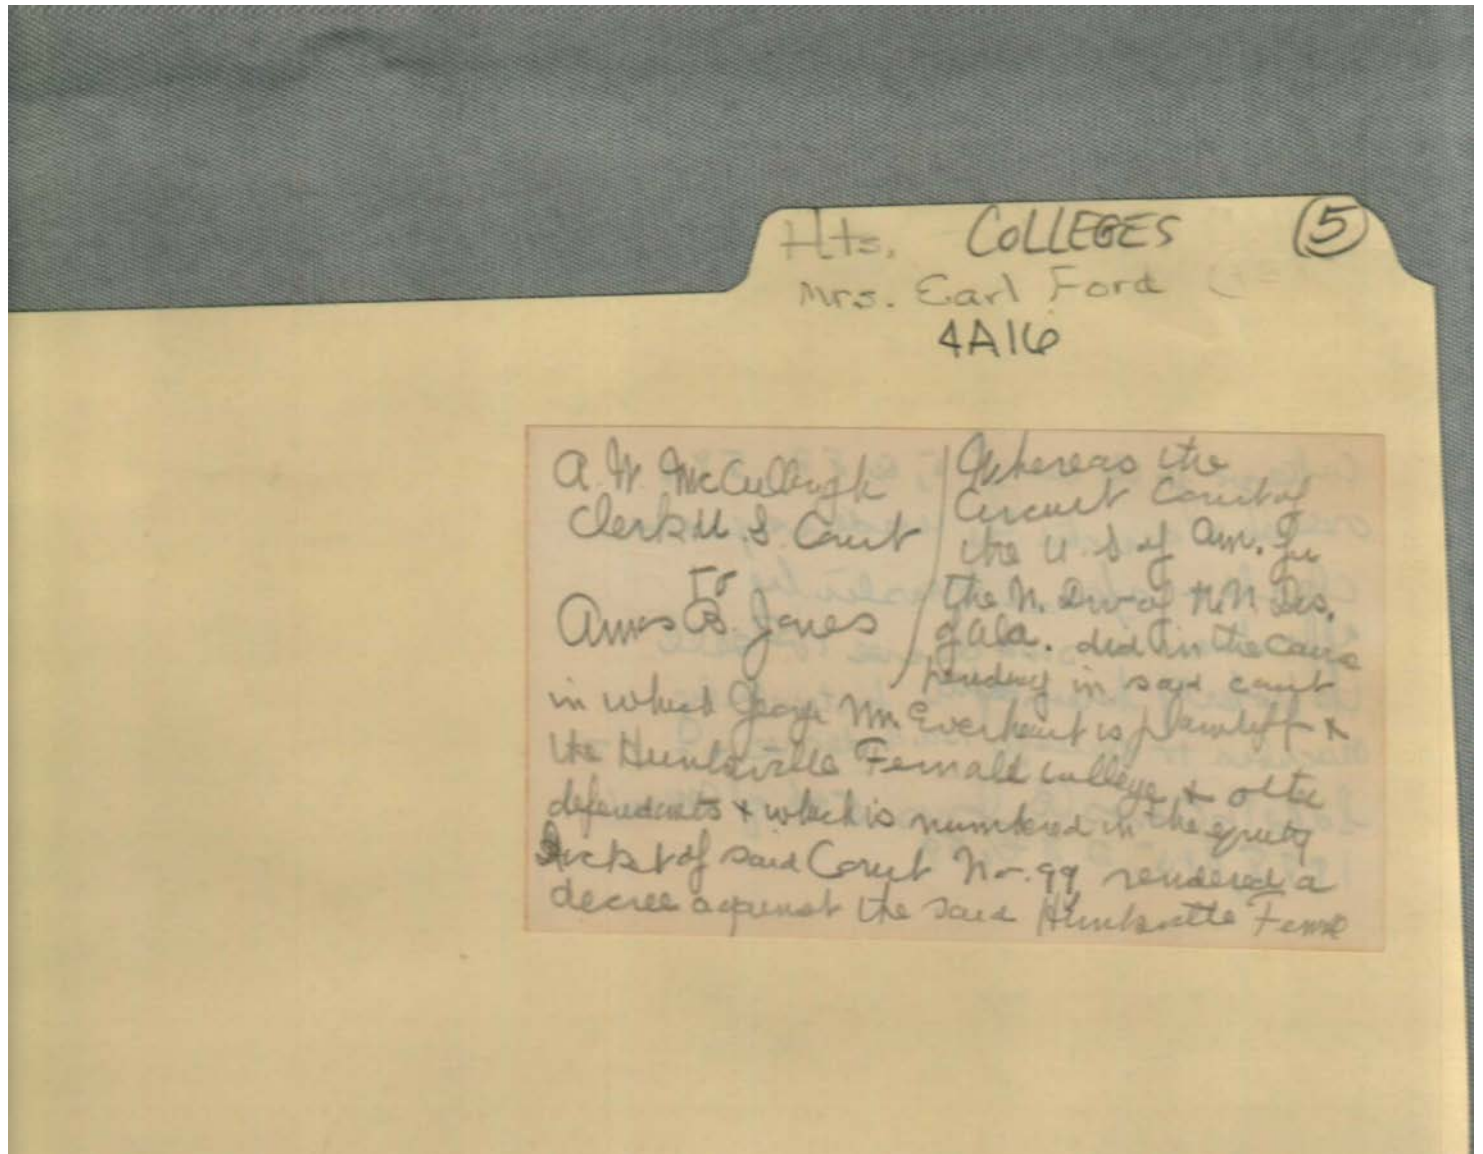 Hts. COLLEGES 5
Mrs. Earl Ford
4A16
A. W. McCullough
Clerk U. S. Court
To
Amos B. Jones
Whereas the
Circuit Court of
the U. S. of Am. for
the N. Div of the N. Dis.
of Ala. did in the cause
pending in said court
in which George Wm. Everhart is plaintiff &
the Huntsville Female College & other
defendants & which is numbered in the equity
Docket of said Court No. 99 rendered a
decree against the said Huntsville Female